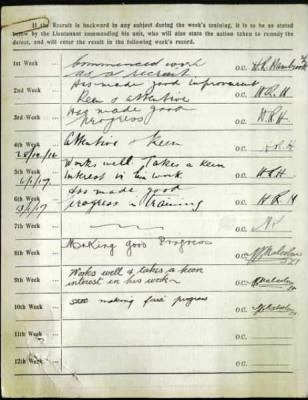 If the Recruit is backward in any subject during the week's training, it is to be so stated
below by the Lieutenant commanding his unit, who will also state the action taken to remedy
the defect, and will enter the result in the following week's record.
1st Week ... Commenced work
as a recruit O.C.
2nd Week Has made good improvement
Keen & attentive O.C. H.R.H
3rd Week ... Has made good
progress O.C. H.R.H
4th Week attentive & keen O.C.
5th Week Works well, takes a keen
interest in his work O.C. H.R.H
6th Week Has made good
progress in training O.C. H R H
7th Week ... O.C.
8th Week Making good Progress O.C.
9th Week ... Works well & takes a keen
interest in his work O.C.
10th Week ... still making fair progress O.C.
11th Week O.C.
12th Week ... O.C.